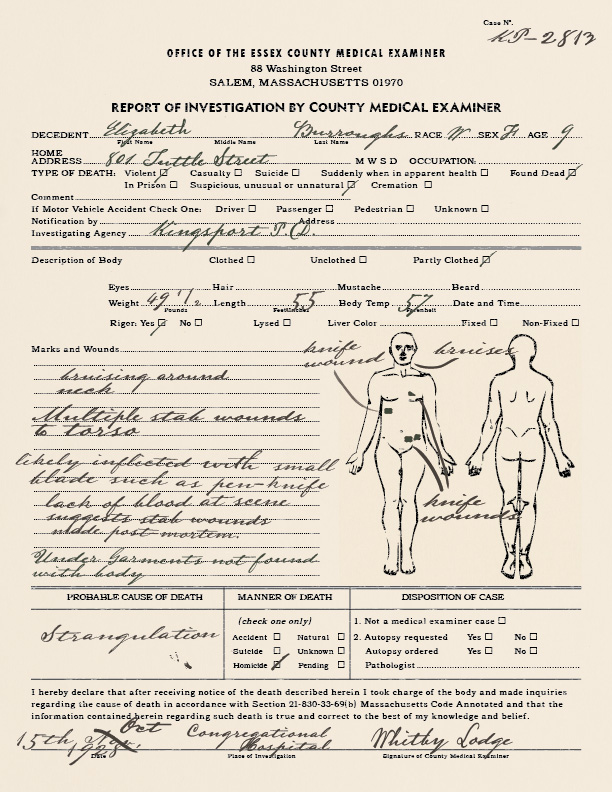 Case Nº.
KP-2813
OFFICE OF THE ESSEX COUNTY MEDICAL EXAMINER
88 Washington Street
SALEM, MASSACHUSETTS 01970
REPORT OF INVESTIGATION BY COUNTY MEDICAL EXAMINER
DECEDENT Elizabeth Burroughs RACE W SEX F AGE 9
First Name Middle Name Last Name
HOME ADDRESS 801 Tuttle Street M W S D OCCUPATION:
TYPE OF DEATH: Violent Casualty Suicide Suddenly when in apparent health Found Dead
In Prison Suspicious, unusual or unnatural Cremation
Comment
If Motor Vehicle Accident Check One: Driver Passenger Pedestrian Unknown
Notification by Address
Investigating Agency Kingsport P.D.
Description of Body Clothed Unclothed Partly Clothed
Eyes Hair Mustache Beard
Weight 49 1/2 Length 55 Body Temp 57 Date and Time
Pounds Feet/Inches Farenheit
Rigor: Yes No Lysed Liver Color Fixed Non-Fixed
Marks and Wounds
knife wound
bruises
bruising around
neck
Multiple stab wounds
to torso
likely inflicted with small
blade such as pen-knife
lack of blood at scene
suggests stab wounds
made post mortem.
Under Garments not found
with body
knife
wounds
PROBABLE CAUSE OF DEATH MANNER OF DEATH DISPOSITION OF CASE
Strangulation
(check one only)
Accident Natural
Suicide Unknown
Homicide Pending
1. Not a medical examiner case
2. Autopsy requested Yes No
Autopsy ordered Yes No
Pathologist
I hereby declare that after receiving notice of the death described herein I took charge of the body and made inquiries
regarding the cause of death in accordance with Section 21-830-33-69(b) Massachusetts Code Annotated and that the
information contained herein regarding such death is true and correct to the best of my knowledge and belief.
15th Oct 1928 Congregational Hospital Whitby Lodge
Date Place of Investigation Signature of County Medical Examiner